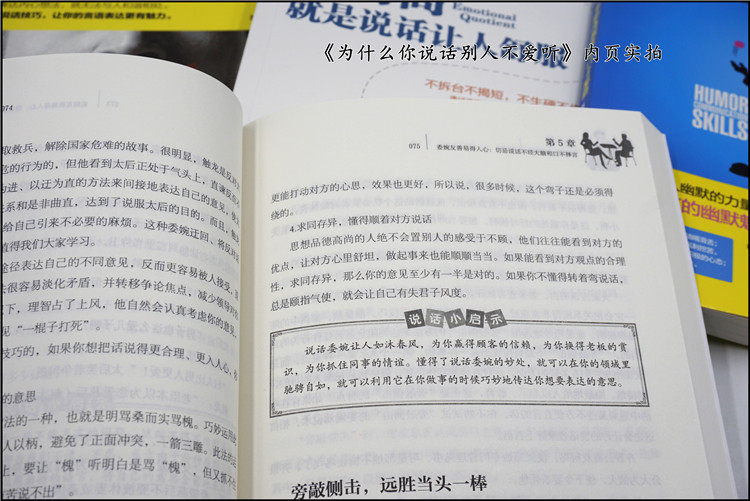 说话技巧，让你的言语表达更有魅力。
Emotional
Quotient
就是说话让人舒服
《为什么你说话别人不爱听》内页实拍
不拆台不揭短，不生硬不
HUMOR
SKILLS
幽默的力量
的幽默
074
取救兵，解除国家危难的故事。很明显，触龙是反对
危的行为的，但他看到太后正处于气头上，直谏反
为进、以迂为直的方法来间接地表达自己的意见，
关系和是非曲直，达到了说服太后的目的。而且，触
给自己引来不必要的麻烦。这种委婉迂回、将反
值得我们大家学习。
途径表达自己的不同意见，反而更容易被人接受，
法很容易淡化矛盾，并转移争论焦点，减少领导对
下，理智占了上风，他自然会认真考虑你的意见，
见“一棍子打死”
技巧的，如果你想把话说得更合理、更入人心，
的意思
法的一种，也就是明骂桑而实骂槐。巧妙运用
人以柄，避免了正面冲突，一箭三雕。此法的
上，要让“槐”听明白是骂“槐”，但又抓不
苦说不出”
075
委婉友善易得人心：切忌说话不经大脑和口不择言
第5章
更能打动对方的心思，效果也更好，所以说，很多时候，这个弯子还是必须得
绕的。
4.求同存异，懂得顺着对方说话
思想品德高尚的人绝不会置别人的感受于不顾，他们往往能看到对方的
优点，让对方心里舒坦，做起事来也能顺顺当当。如果能看到对方观点的合理
性，求同存异，那么你的意见至少有一半是对的。如果你不懂得转着弯说话，
总是颐指气使，就会让自己有失君子风度。
说话小启示
说话委婉让人如沐春风，为你赢得顾客的信赖，为你换得老板的赏
识，为你抓住同事的情谊。懂得了说话委婉的妙处，就可以在你的领域里
驰骋自如，就可以利用它在你做事的时候巧妙地传达你想要表达的意思。
旁敲侧击，远胜当头一棒